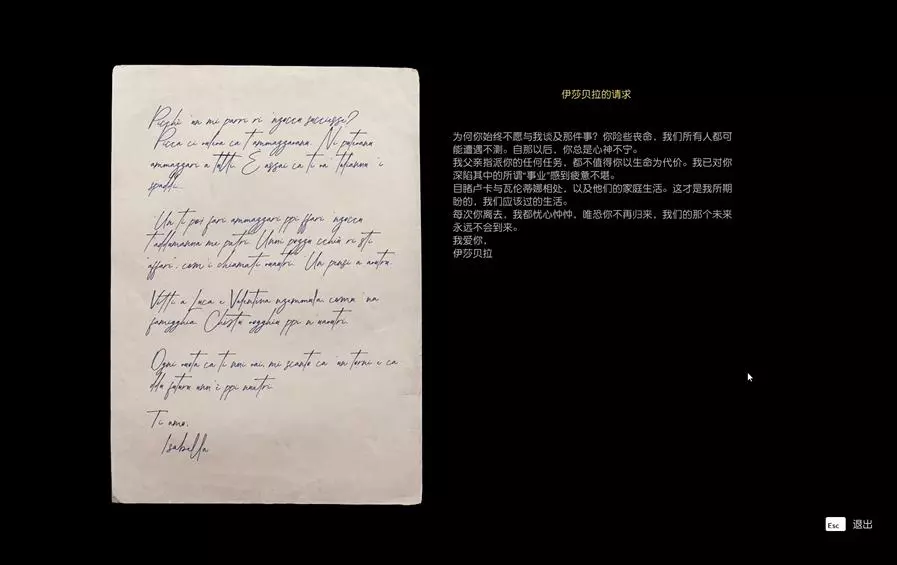 Picchì 'un mi parri ri 'nzocca successi?
Picca ci vulíva ca t'ammazzavanu. Ni putivanu
ammazzari a tutti. E assai ca ti
spaddi.
'Un ti poi fari ammazzari ppi ffari 'nzocca
t'addumanna me patri. Unni pozzu cchiù ri sti
"affari", com'i chiamati vuautri. 'Un pensi a nautru.
Vitti a Luca e Valentina nzemmula, comu 'na
famigghia. Chistu vogghiu ppi n'uautri.
Ogni vota ca ti nni vai, mi scantu ca 'un torni e ca
ddu futuru unn'è ppi nuatri.
Ti amo,
Isabella
伊莎贝拉的请求
为何你始终不愿与我谈及那件事？你险些丧命，我们所有人都可
能遭遇不测。自那以后，你总是心神不宁。
我父亲指派你的任何任务，都不值得你以生命为代价。我已对你
深陷其中的所谓“事业”感到疲惫不堪。
目睹卢卡与瓦伦蒂娜相处，以及他们的家庭生活。这才是我所期
盼的，我们应该过的生活。
每次你离去，我都忧心忡忡，唯恐你不再归来，我们的那个未来
永远不会到来。
我爱你，
伊莎贝拉
Esc 退出